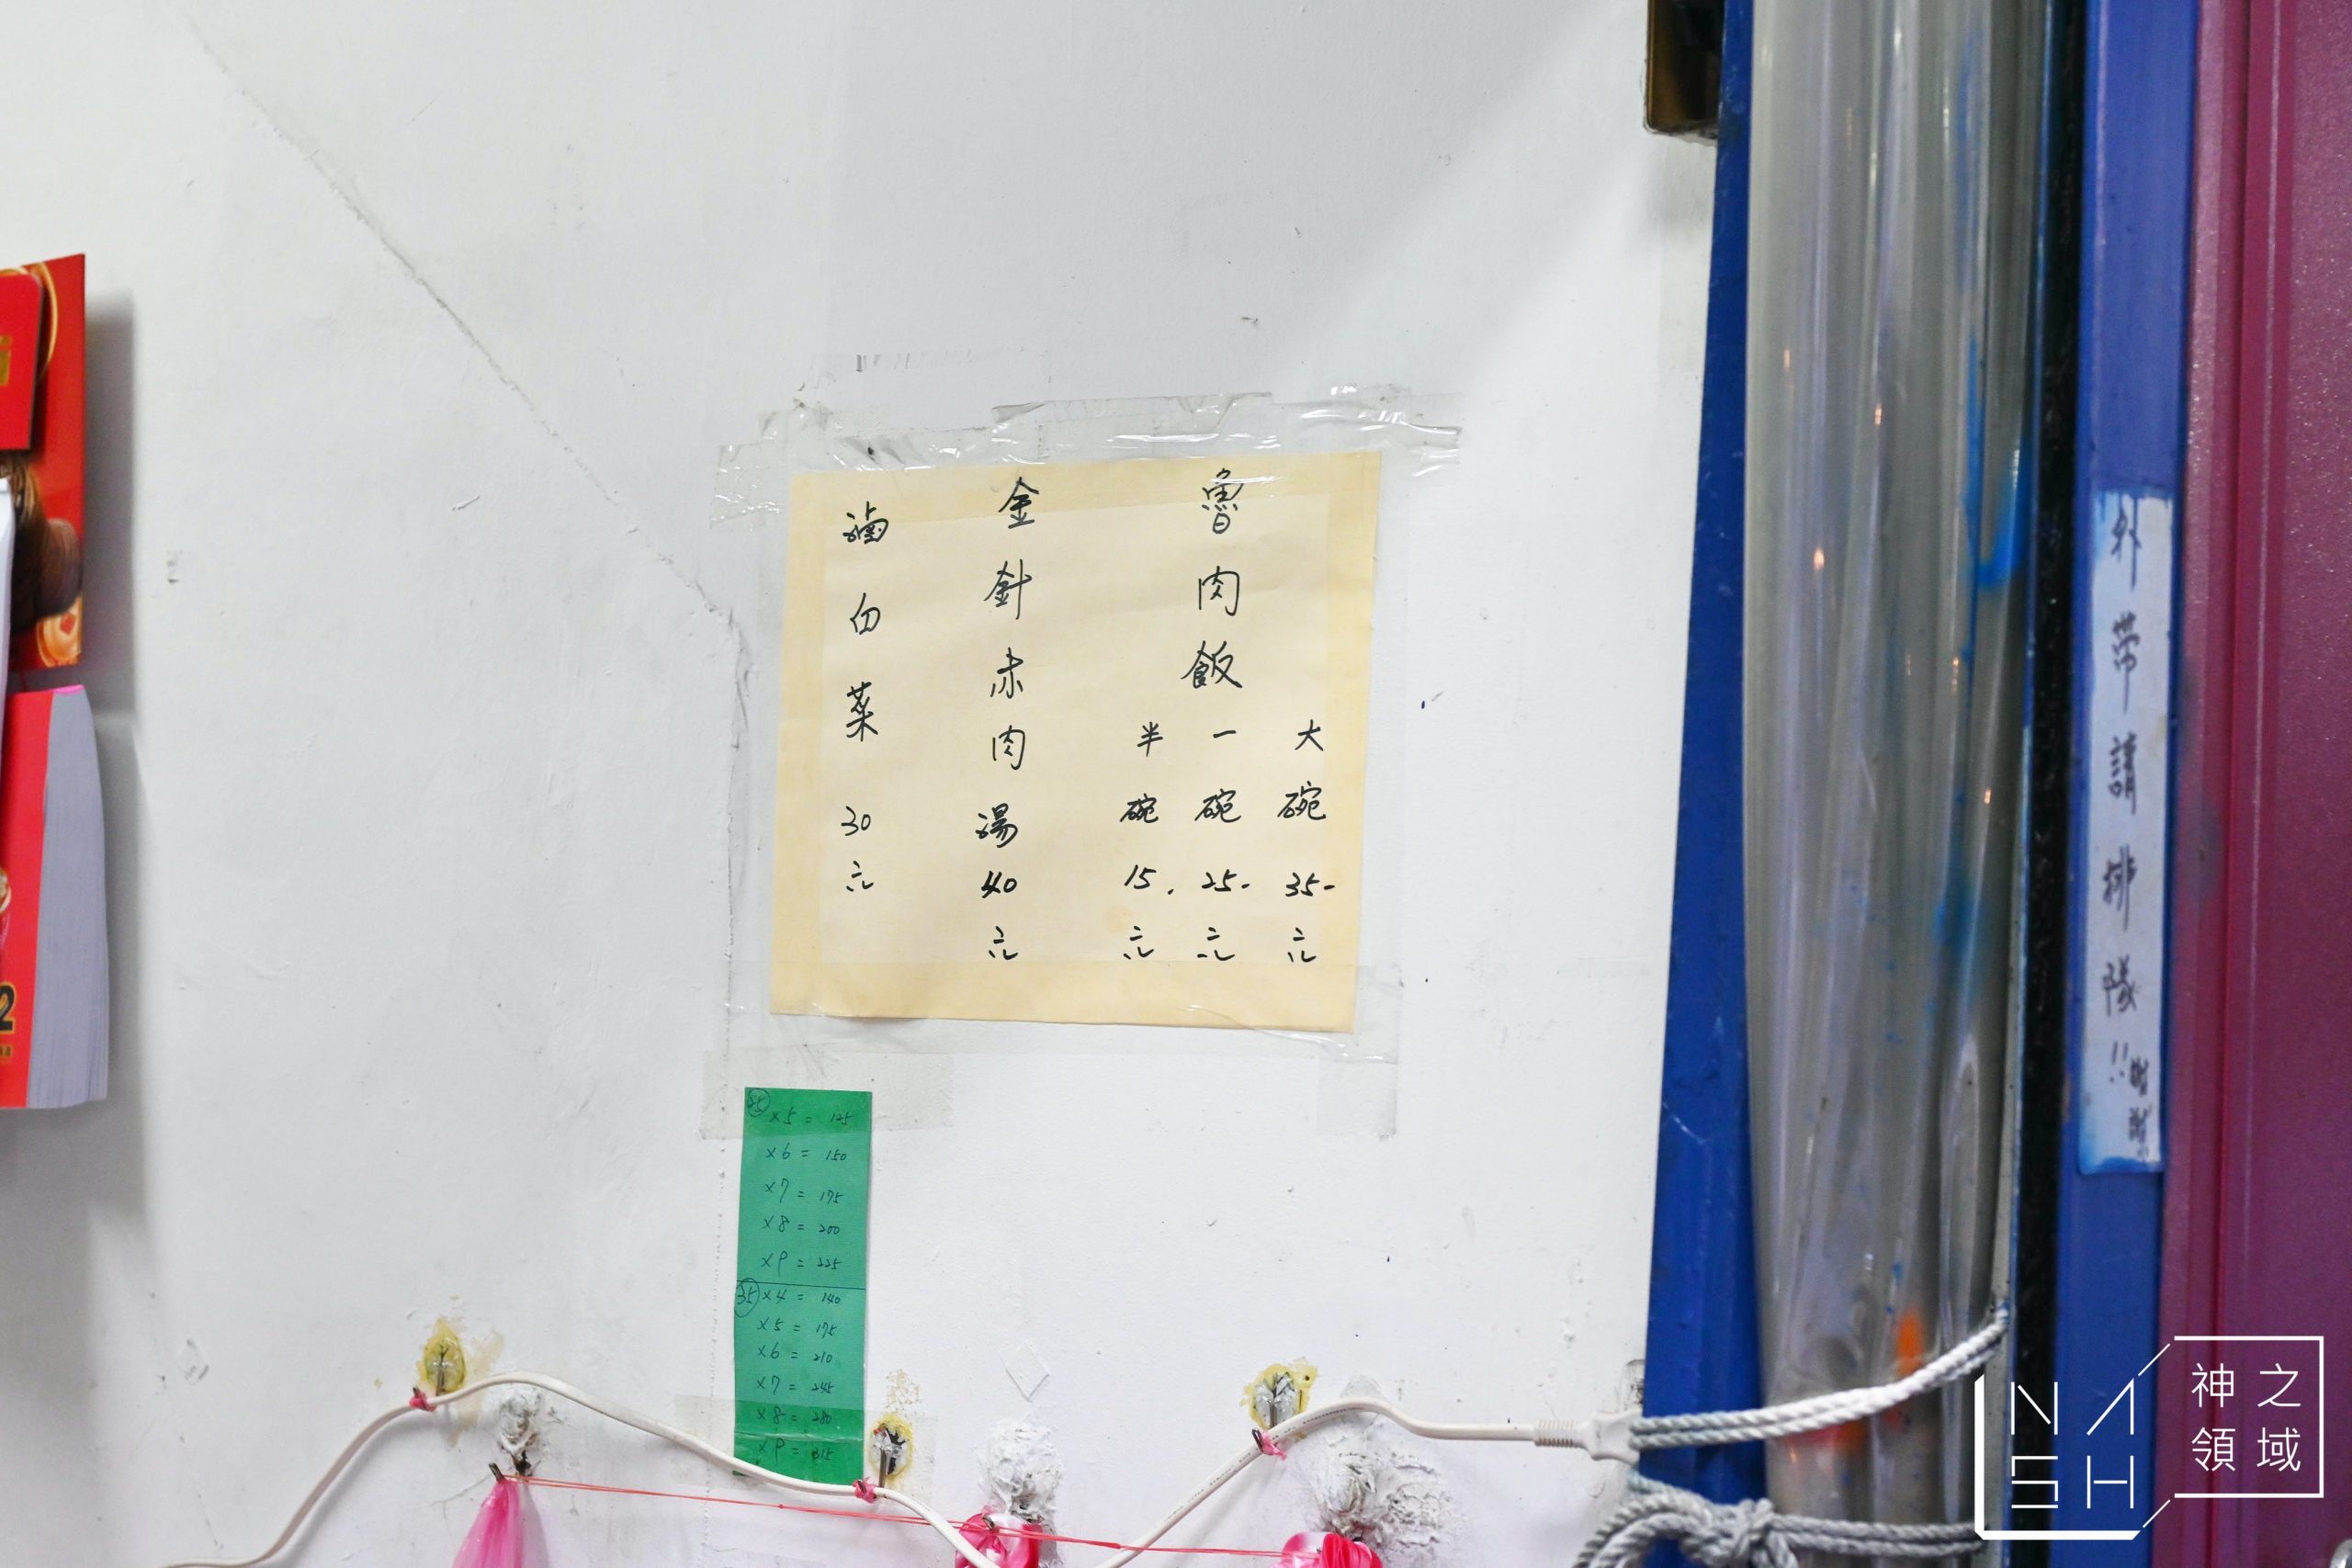 魯肉飯
大碗35-元
一碗25-元
半碗15.元
金針赤肉湯40元
滷白菜30元
外帶請排隊!!謝謝
25 x5 = 125
x6 = 150
x7 = 175
x8 = 200
x9 = 225
35 x4 = 140
x5 = 175
x6 = 210
x7 = 245
x8 = 280
x9 = 315
2
NASH
神之領域